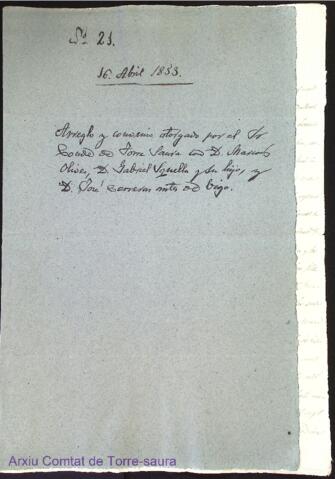 Nº 21.
16. Abril 1853.
Arreglo y convenio otorgado por el Sr
Conde de Torre Saura con D. Marcos
Oliver, D. Gabriel Squella y su hijo, y
D. José Carreras
Arxiu Comtat de Torre-saura